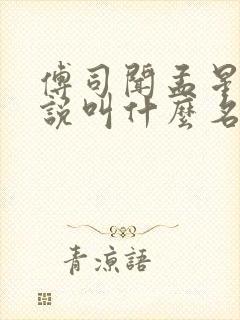 傅司聞孟星
說叫什麼名
青涼語